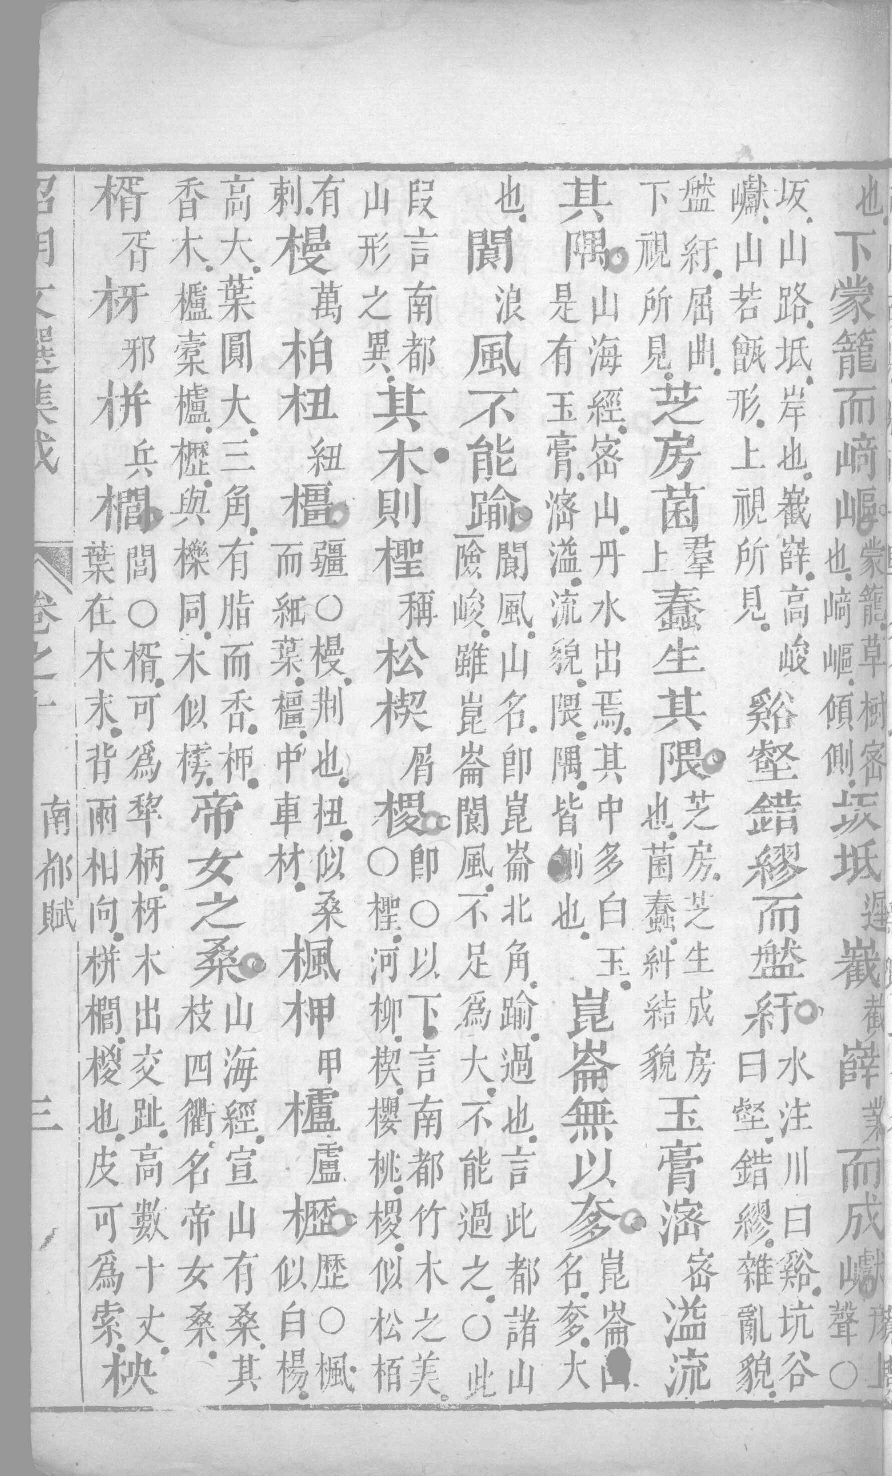 也下蒙籠而﨑嶇蒙籠草樹密也﨑嶇傾側坂坻遲嶻截嶭業而成巘獻上聲○
坂山路坻岸也嶻嶭高峻巘山若甑形上視所見谿壑錯繆而盤紆水注川曰谿坑谷曰壑錯繆雜亂貌
盤紆屈曲下視所見芝房菌羣上蠢生其隈芝房芝生成房也菌蠢糾結貌玉膏滵密溢流
其隅山海經密山丹水出焉其中多白玉是有玉膏滵溢流貌隈隅皆側也崑崙無以奓崑崙山名奓大
也閬浪風不能踰閬風山名卽崑崙北角踰過也言此都諸山險峻雖崑崙閬風不足爲大不能過之○此
段言南都山形之異其木則檉稱松楔屑㮨卽○以下言南都竹木之美○檉河柳楔櫻桃㮨似松栢
有刺槾萬柏杻紐橿疆○槾荆也杻似桑而細葉橿中車材楓柙甲櫨盧櫪歷○楓似白楊
高大葉圓大三角有脂而香柙香木櫨橐櫨櫪與櫟同木似樗帝女之桑山海經宣山有桑其枝四衢名帝女桑
楈胥枒邪栟兵櫚閭○楈可爲犂柄枒木出交趾高數十丈葉在木末背雨相向栟櫚椶也皮可爲索柍
昭明文選集成 卷之十 南都賦 三